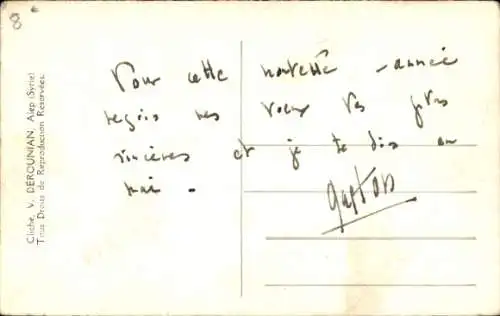 8
Pour cette nouvelle année
reçois mes voeux les plus
sincères et je te dis au
Gaston
Cliché. V. DEROUNIAN. Alep (Syrie)
Tous Droits de Reproduction Réservées.